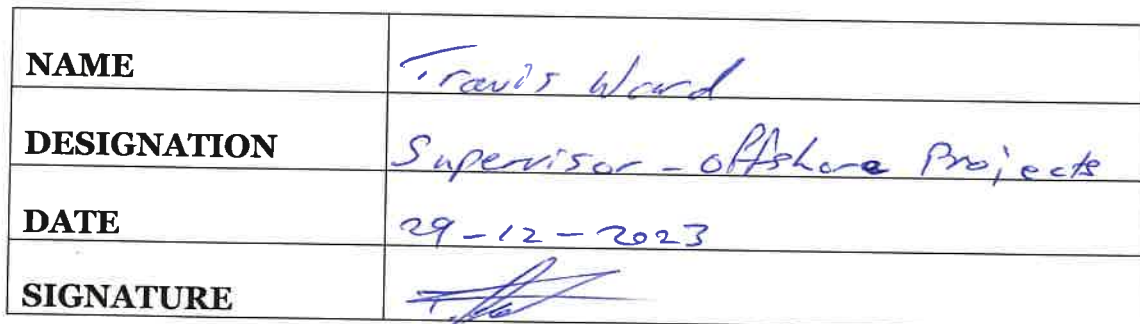 NAME Travis Ward
DESIGNATION Supervisor - Offshore Projects
DATE 29-12-2023
SIGNATURE